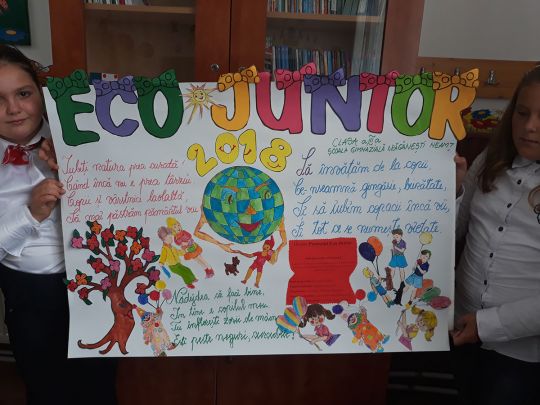 ECO JUNIOR
2018
CLASA a IV a
ȘCOALA GIMNAZIALĂ NEAMȚ
Iubiți natura prea curată!
Până încă nu e prea târziu
Copii și vârstnici laolaltă,
Să mai păstrăm pământul viu
Să învățăm de la copii
Ce-nseamnă gingășie, bunătate,
Și să iubim copacii încă vii,
Și tot ce se numește viețate.
Nădejdea să faci bine,
În tine e copilul meu
Tu înflorești zorii de mâine
Ești peste negură, curcubeu!